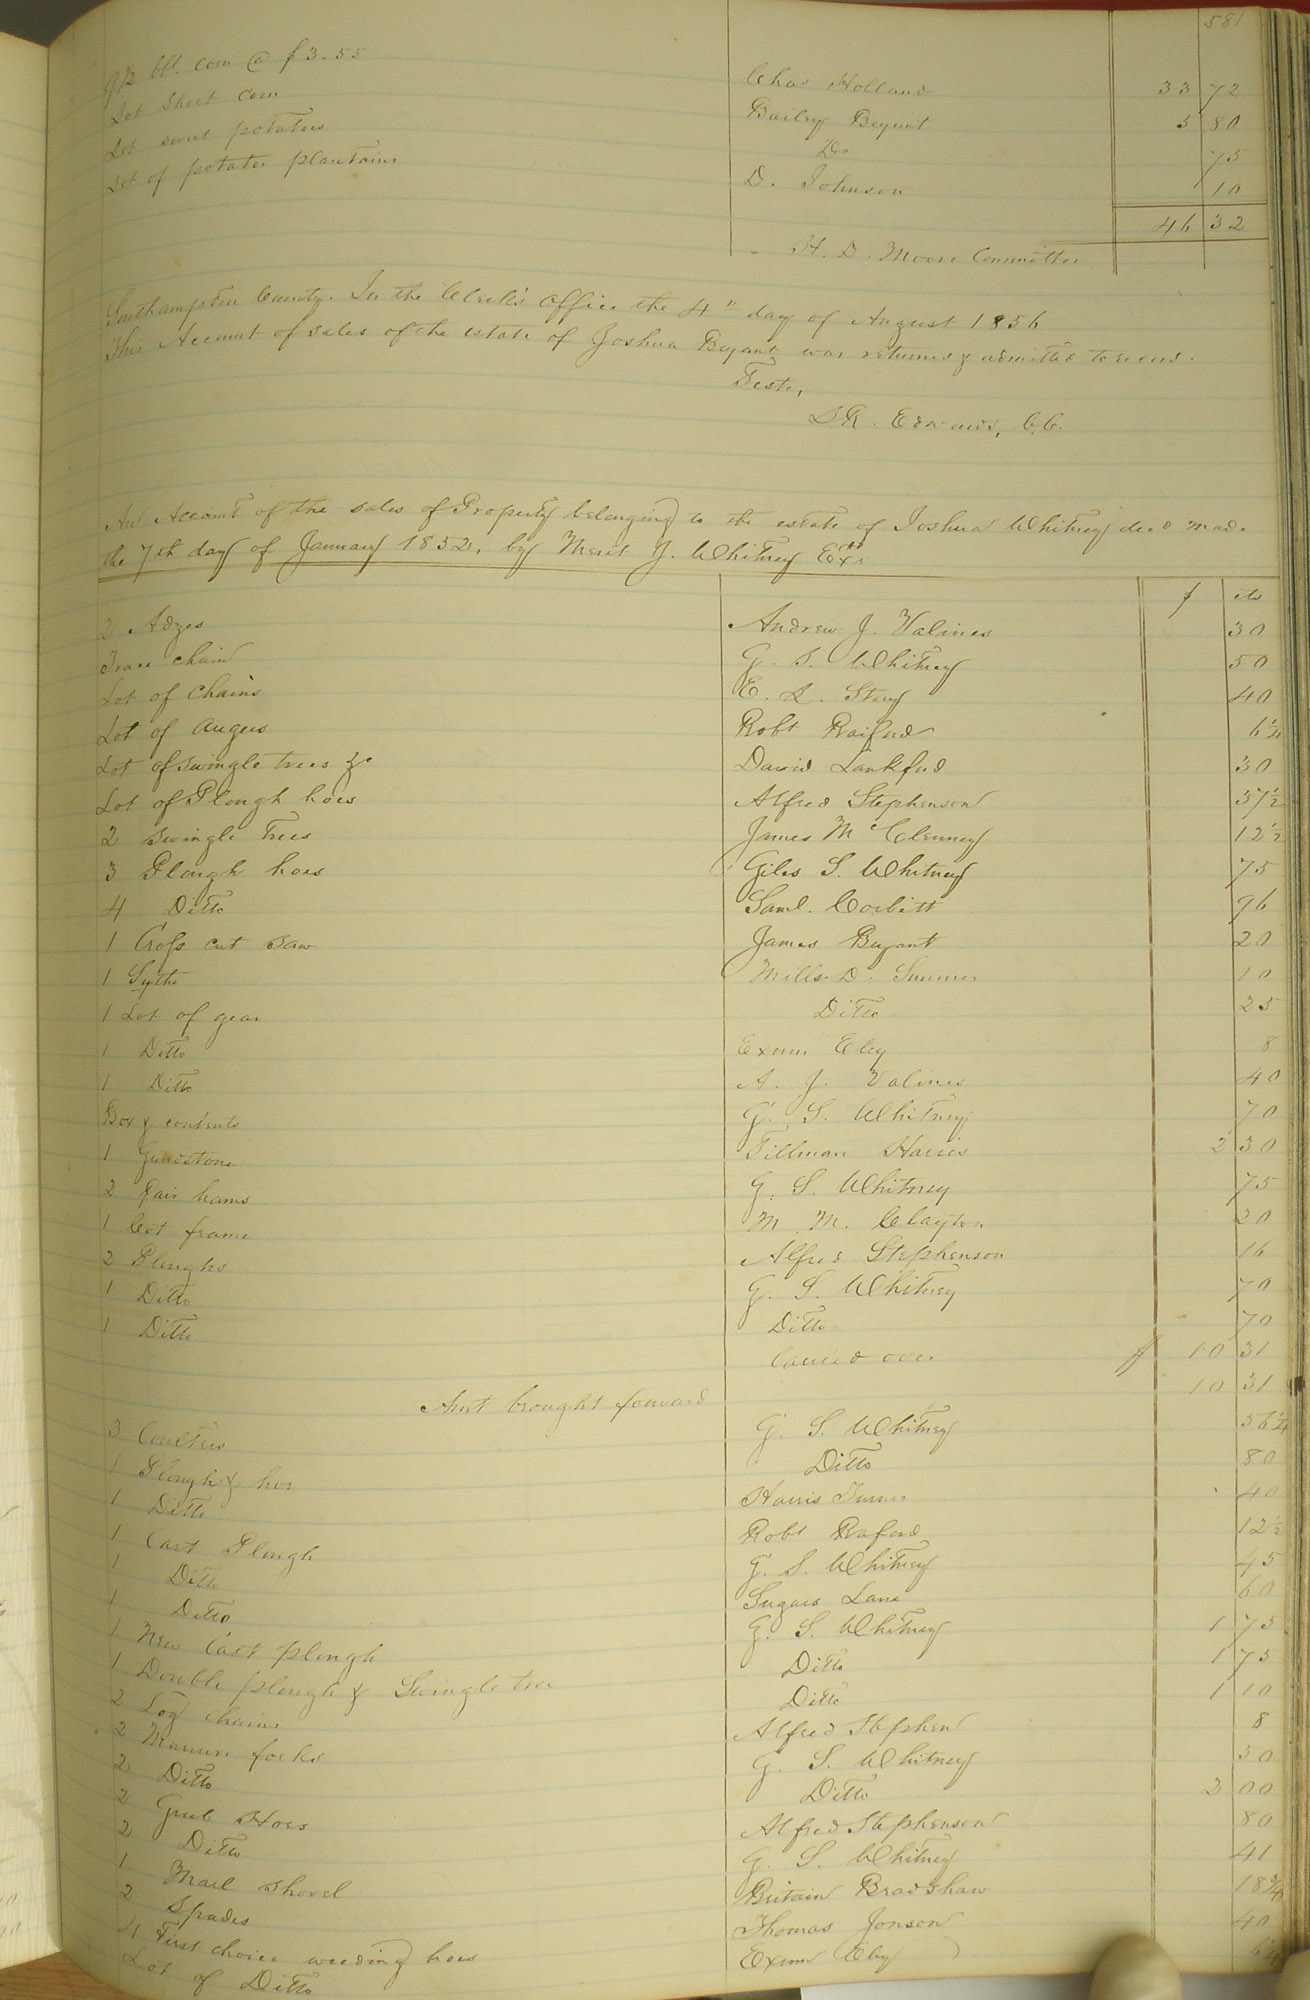 581
9½ bbl. corn @ $3.55 Chas Holland 33 72
Lot short corn Bailey Bryant 5 80
Lot sweet potatoes Do 75
Lot of potatoe plantains D. Johnson 10
46 32
H. D. Moore Committee
Southampton County. In the Clerk's Office the 4" day of August 1856
This Account of sales of the estate of Joshua Bryant was returned & admitted to record.
Teste,
L.R. Edwards, C.C.
An Account of the sales of Property belonging to the estate of Joshua Whitney decd made
the 7th day of January 1852, by Merit J. Whitney Exr
$ cts
2 Adzes Andrew J. Valines 30
Trace chain G. S. Whitney 50
Lot of Chains E. L. Story 40
Lot of augers Robt Raiford 6¼
Lot of swingle trees &c David Lankford 30
Lot of Plough hoes Alfred Stephenson 37½
2 swingle trees James McClenney 12½
3 Plough hoes Giles S. Whitney 75
4 Ditto Saml. Corbitt 96
1 Cross cut saw James Bryant 20
1 Sythe Mills D. Sumner 10
1 Lot of gear Ditto 25
1 Ditto Exum Eley 8
1 Ditto A. J. Valines 40
Box & contents G. S. Whitney 70
1 Grindstone Tillman Harris 2 30
2 Pair hams G. S. Whitney 75
1 Cot frame M M. Clayton 20
2 Ploughs Alfred Stephenson 16
1 Ditto G. S. Whitney 70
1 Ditto Ditto 70
Carried over $ 10 31
Amt brought forward 10 31
3 Coulters G. S. Whitney 56¼
1 Plough & hoe Ditto 80
1 Ditto Harris Turner 40
1 Cast Plough Robt Raford 12½
1 Ditto G. S. Whitney 45
1 Ditto Sugars Lane 60
1 New Cast plough G. S. Whitney 1 75
1 Double plough & Swingle tree Ditto 1 75
2 Log chains Ditto 1 10
2 Manure forks Alfred Stephen 8
2 Ditto G. S. Whitney 50
2 Grub Hoes Ditto 2 00
2 Ditto Alfred Stephenson 80
1 Marl shovel G. S. Whitney 41
2 Spades Britain Bradshaw 18¾
4 First choice weeding hoes Thomas Jonson 40
Lot of Ditto Exum Eley 6¼